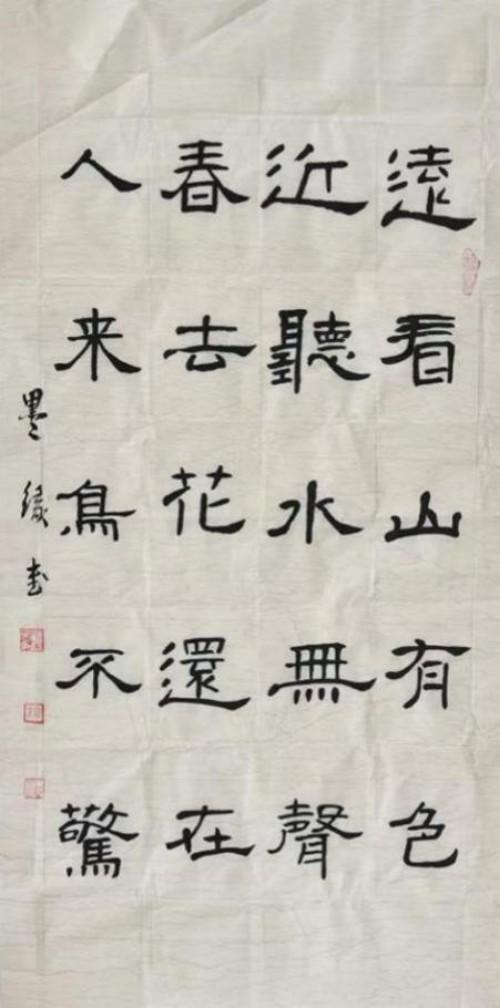 遠看山有色
近聽水無聲
春去花還在
人来鳥不驚
墨缘书